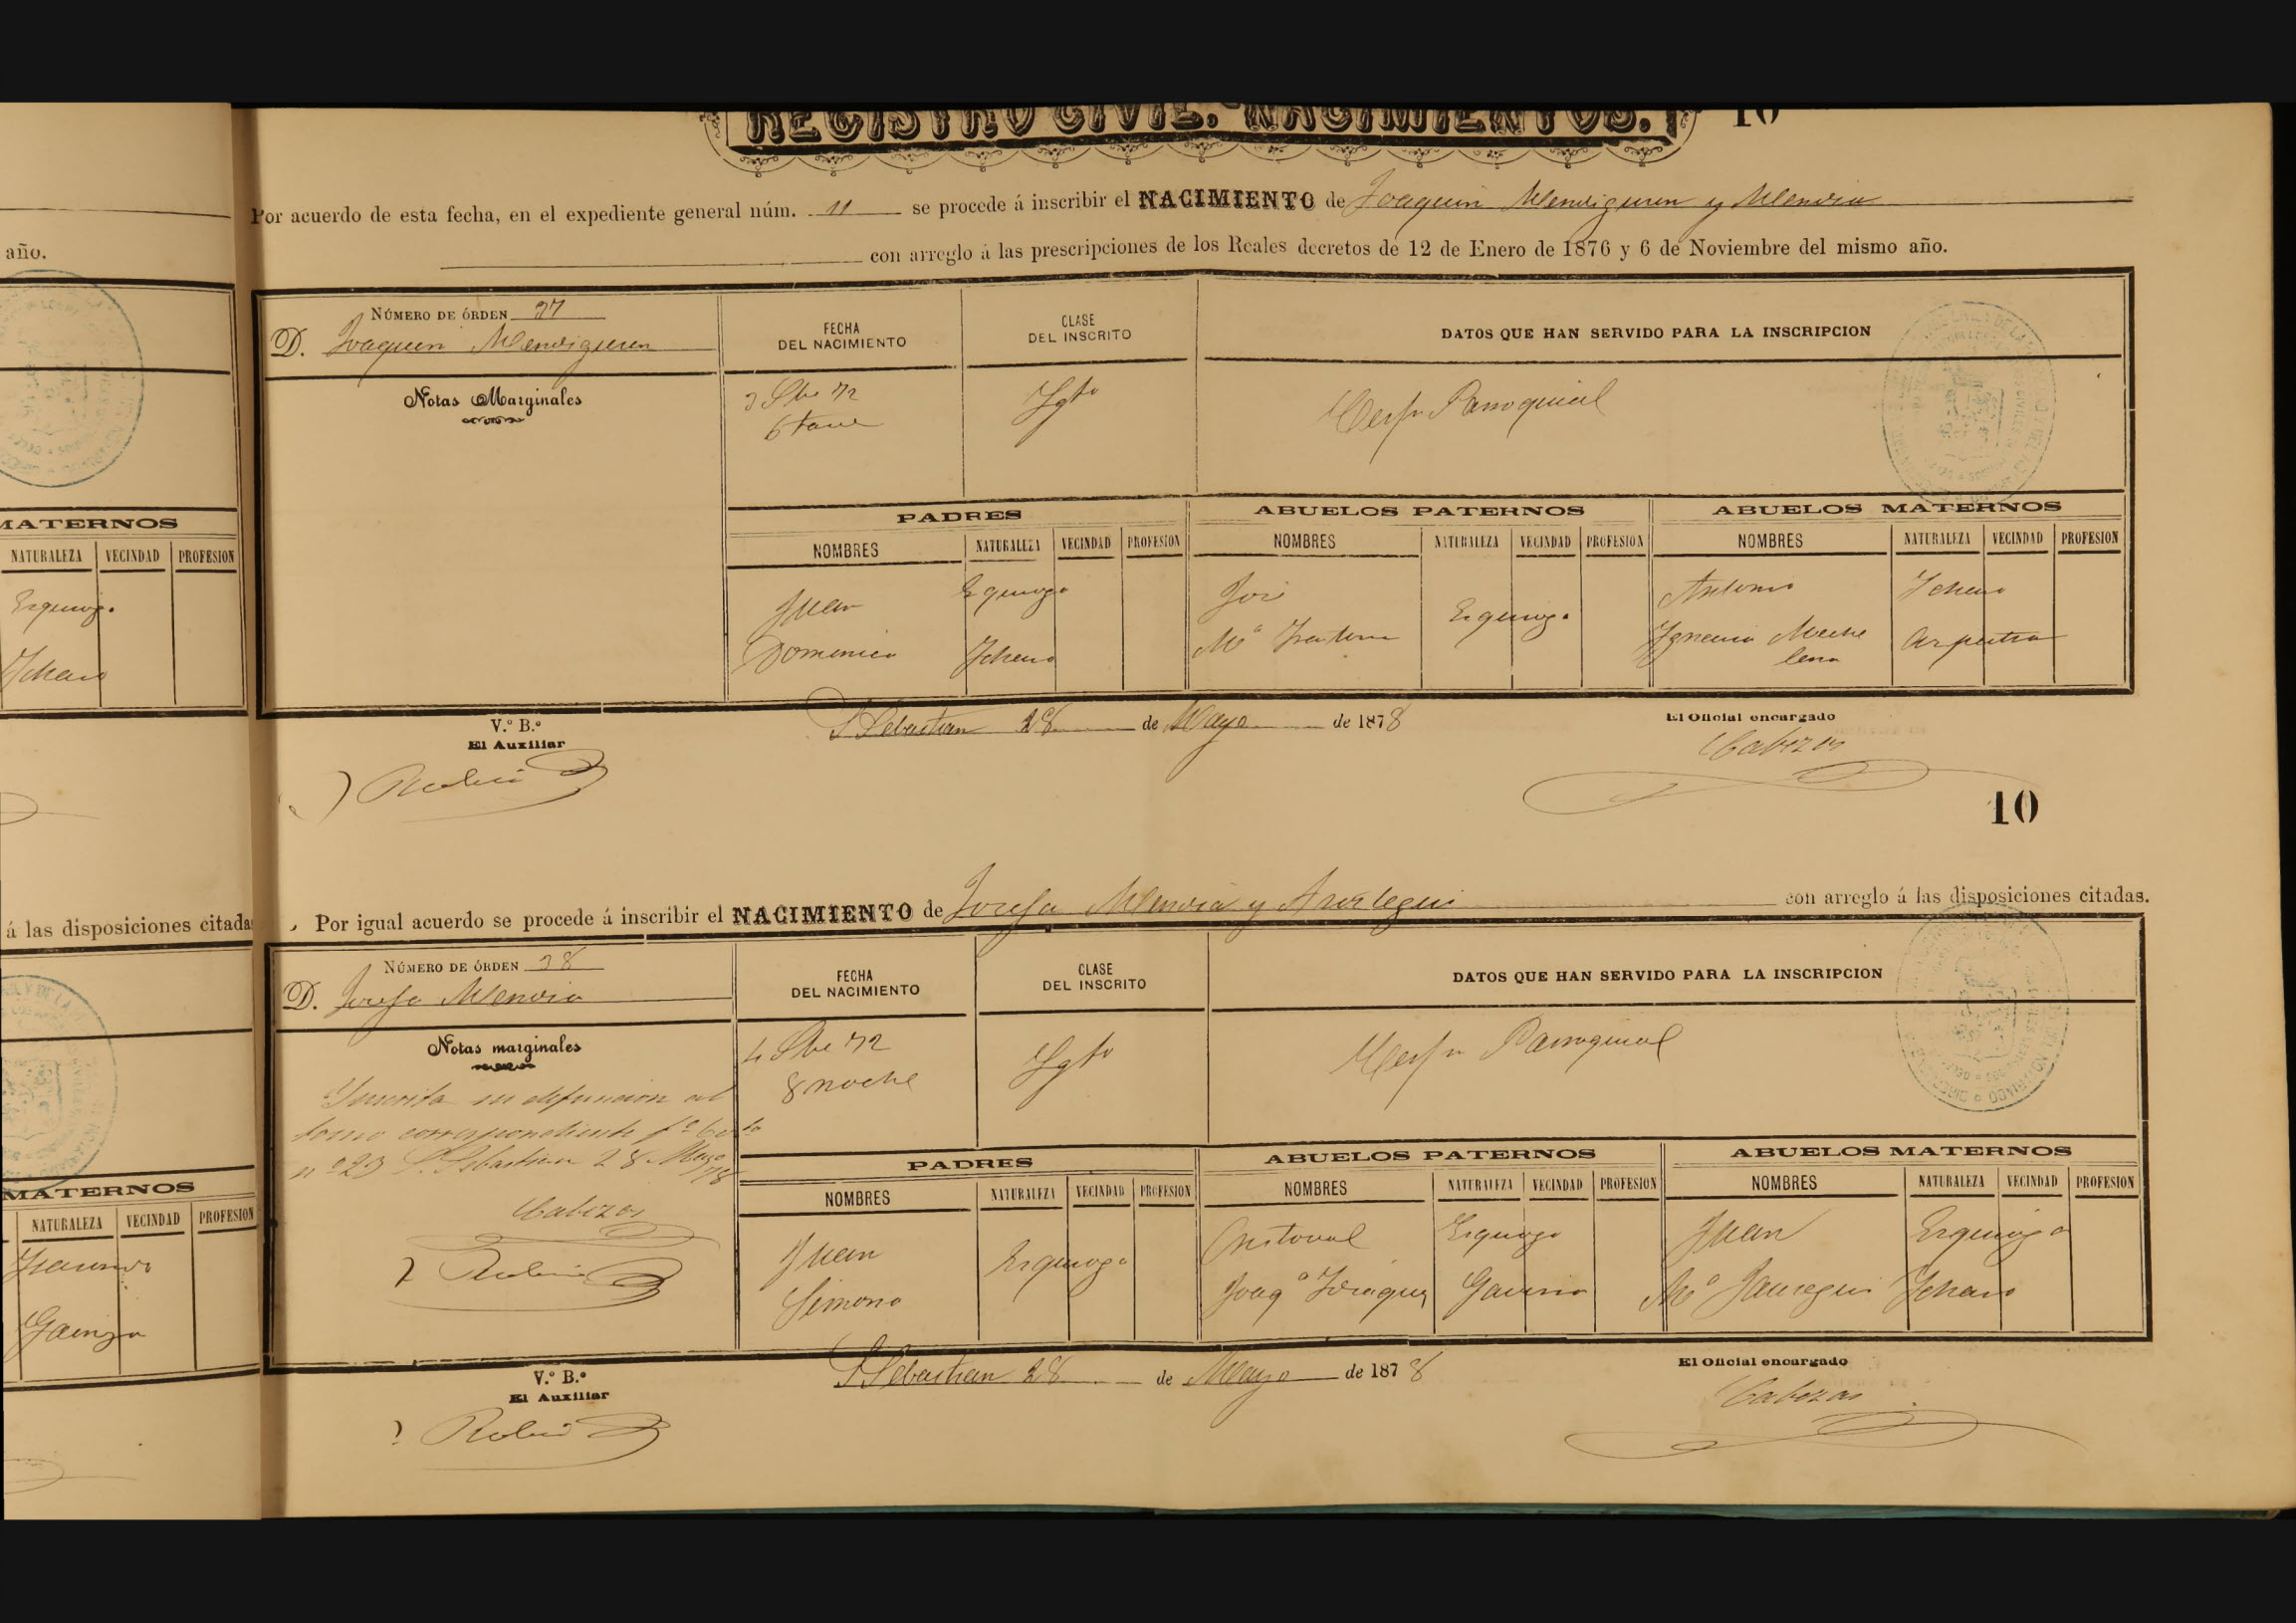 REGISTRO CIVIL. NACIMIENTOS. 10
Por acuerdo de esta fecha, en el expediente general núm. 11 se procede á inscribir el NACIMIENTO de Joaquin Mendiguren y Mendia
con arreglo á las prescripciones de los Reales decretos de 12 de Enero de 1876 y 6 de Noviembre del mismo año.
año.
NÚMERO DE ÓRDEN 37
D. Joaquin Mendiguren
FECHA DEL NACIMIENTO
CLASE DEL INSCRITO
DATOS QUE HAN SERVIDO PARA LA INSCRIPCION
Notas Marginales
3 Sbe 72
6 tarde
Lgto
Certfn Parroquial
MATERNOS
NATURALEZA VECINDAD PROFESION
Ezquioga
Ichaso
PADRES
ABUELOS PATERNOS
ABUELOS MATERNOS
NOMBRES NATURALEZA VECINDAD PROFESION
NOMBRES NATURALEZA VECINDAD PROFESION
NOMBRES NATURALEZA VECINDAD PROFESION
Juan Ezquioga
José Ezquioga
Antonio Ichaso
Domenica Ichaso
Mª
Ignacia
V.º B.º
El Auxiliar
S Sebastian 28 de Mayo de 1878
El Oficial encargado
Rubio
Cabezas
10
á las disposiciones citadas
Por igual acuerdo se procede á inscribir el NACIMIENTO de Josefa Mendia y con arreglo á las disposiciones citadas.
NÚMERO DE ÓRDEN 38
D. Josefa Mendia
FECHA DEL NACIMIENTO
CLASE DEL INSCRITO
DATOS QUE HAN SERVIDO PARA LA INSCRIPCION
Notas marginales
4 Sbe 72
8 noche
Lgto
Certfn Parroquial
Inscrita su defuncion al
tomo correspondiente fº
nº 23 S. Sebastian 28 Mayo 78
Cabezas
Rubio
MATERNOS
NATURALEZA VECINDAD PROFESION
Gainza
PADRES
ABUELOS PATERNOS
ABUELOS MATERNOS
NOMBRES NATURALEZA VECINDAD PROFESION
NOMBRES NATURALEZA VECINDAD PROFESION
NOMBRES NATURALEZA VECINDAD PROFESION
Juan Ezquioga
Cristoval Ezquioga
Juan Ezquioga
Simona
Joaqª Gaviria
Mª Jauregui Ichaso
V.º B.º
El Auxiliar
S Sebastian 28 de Mayo de 1878
El Oficial encargado
Rubio
Cabezas